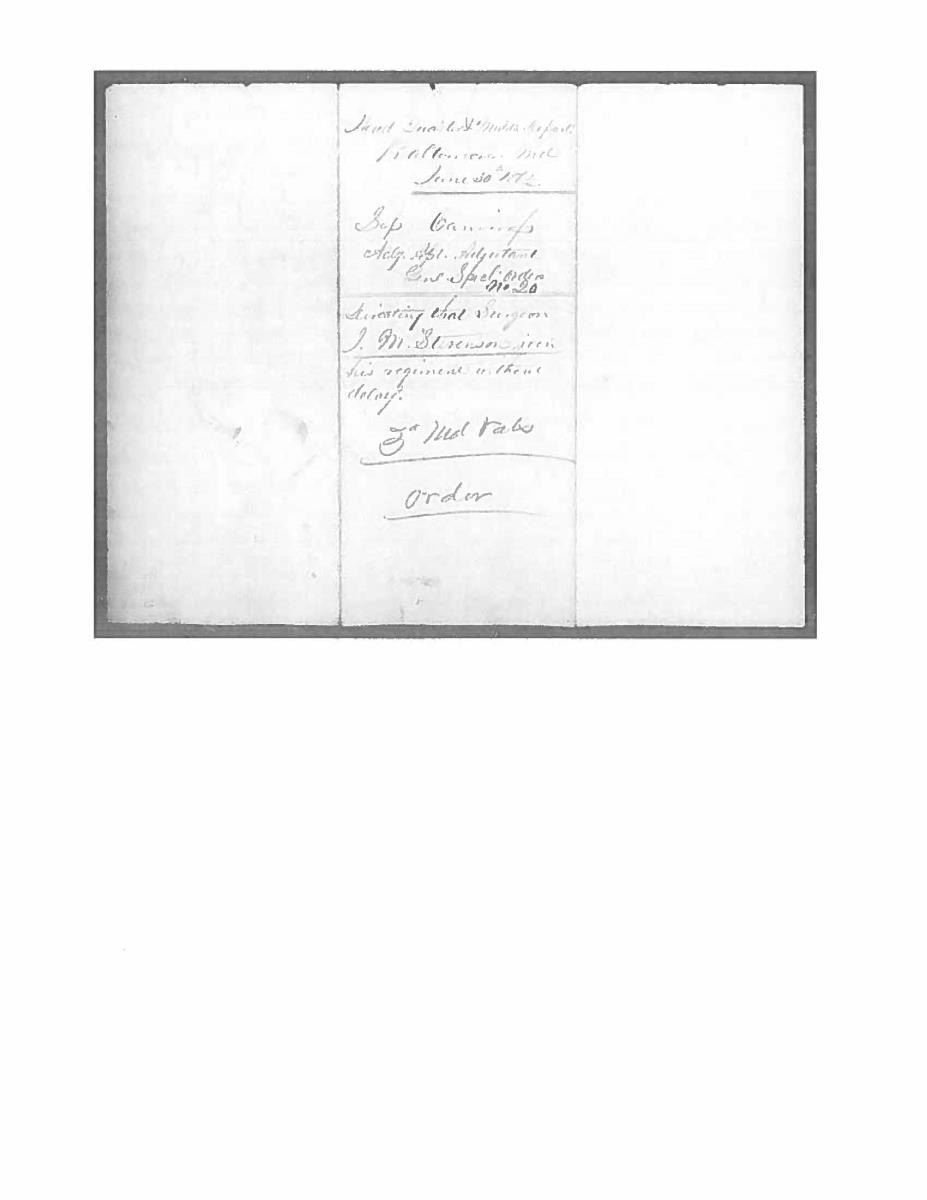 Head Quarters Middle Depart
Baltimore Md
June 30th 1862
Adg. Asst. Adjutant
Genl. Specl. Order
No 20
directing that Surgeon
J. M. Stevenson join
his regiment without
delay.
3d Md Vols
Order